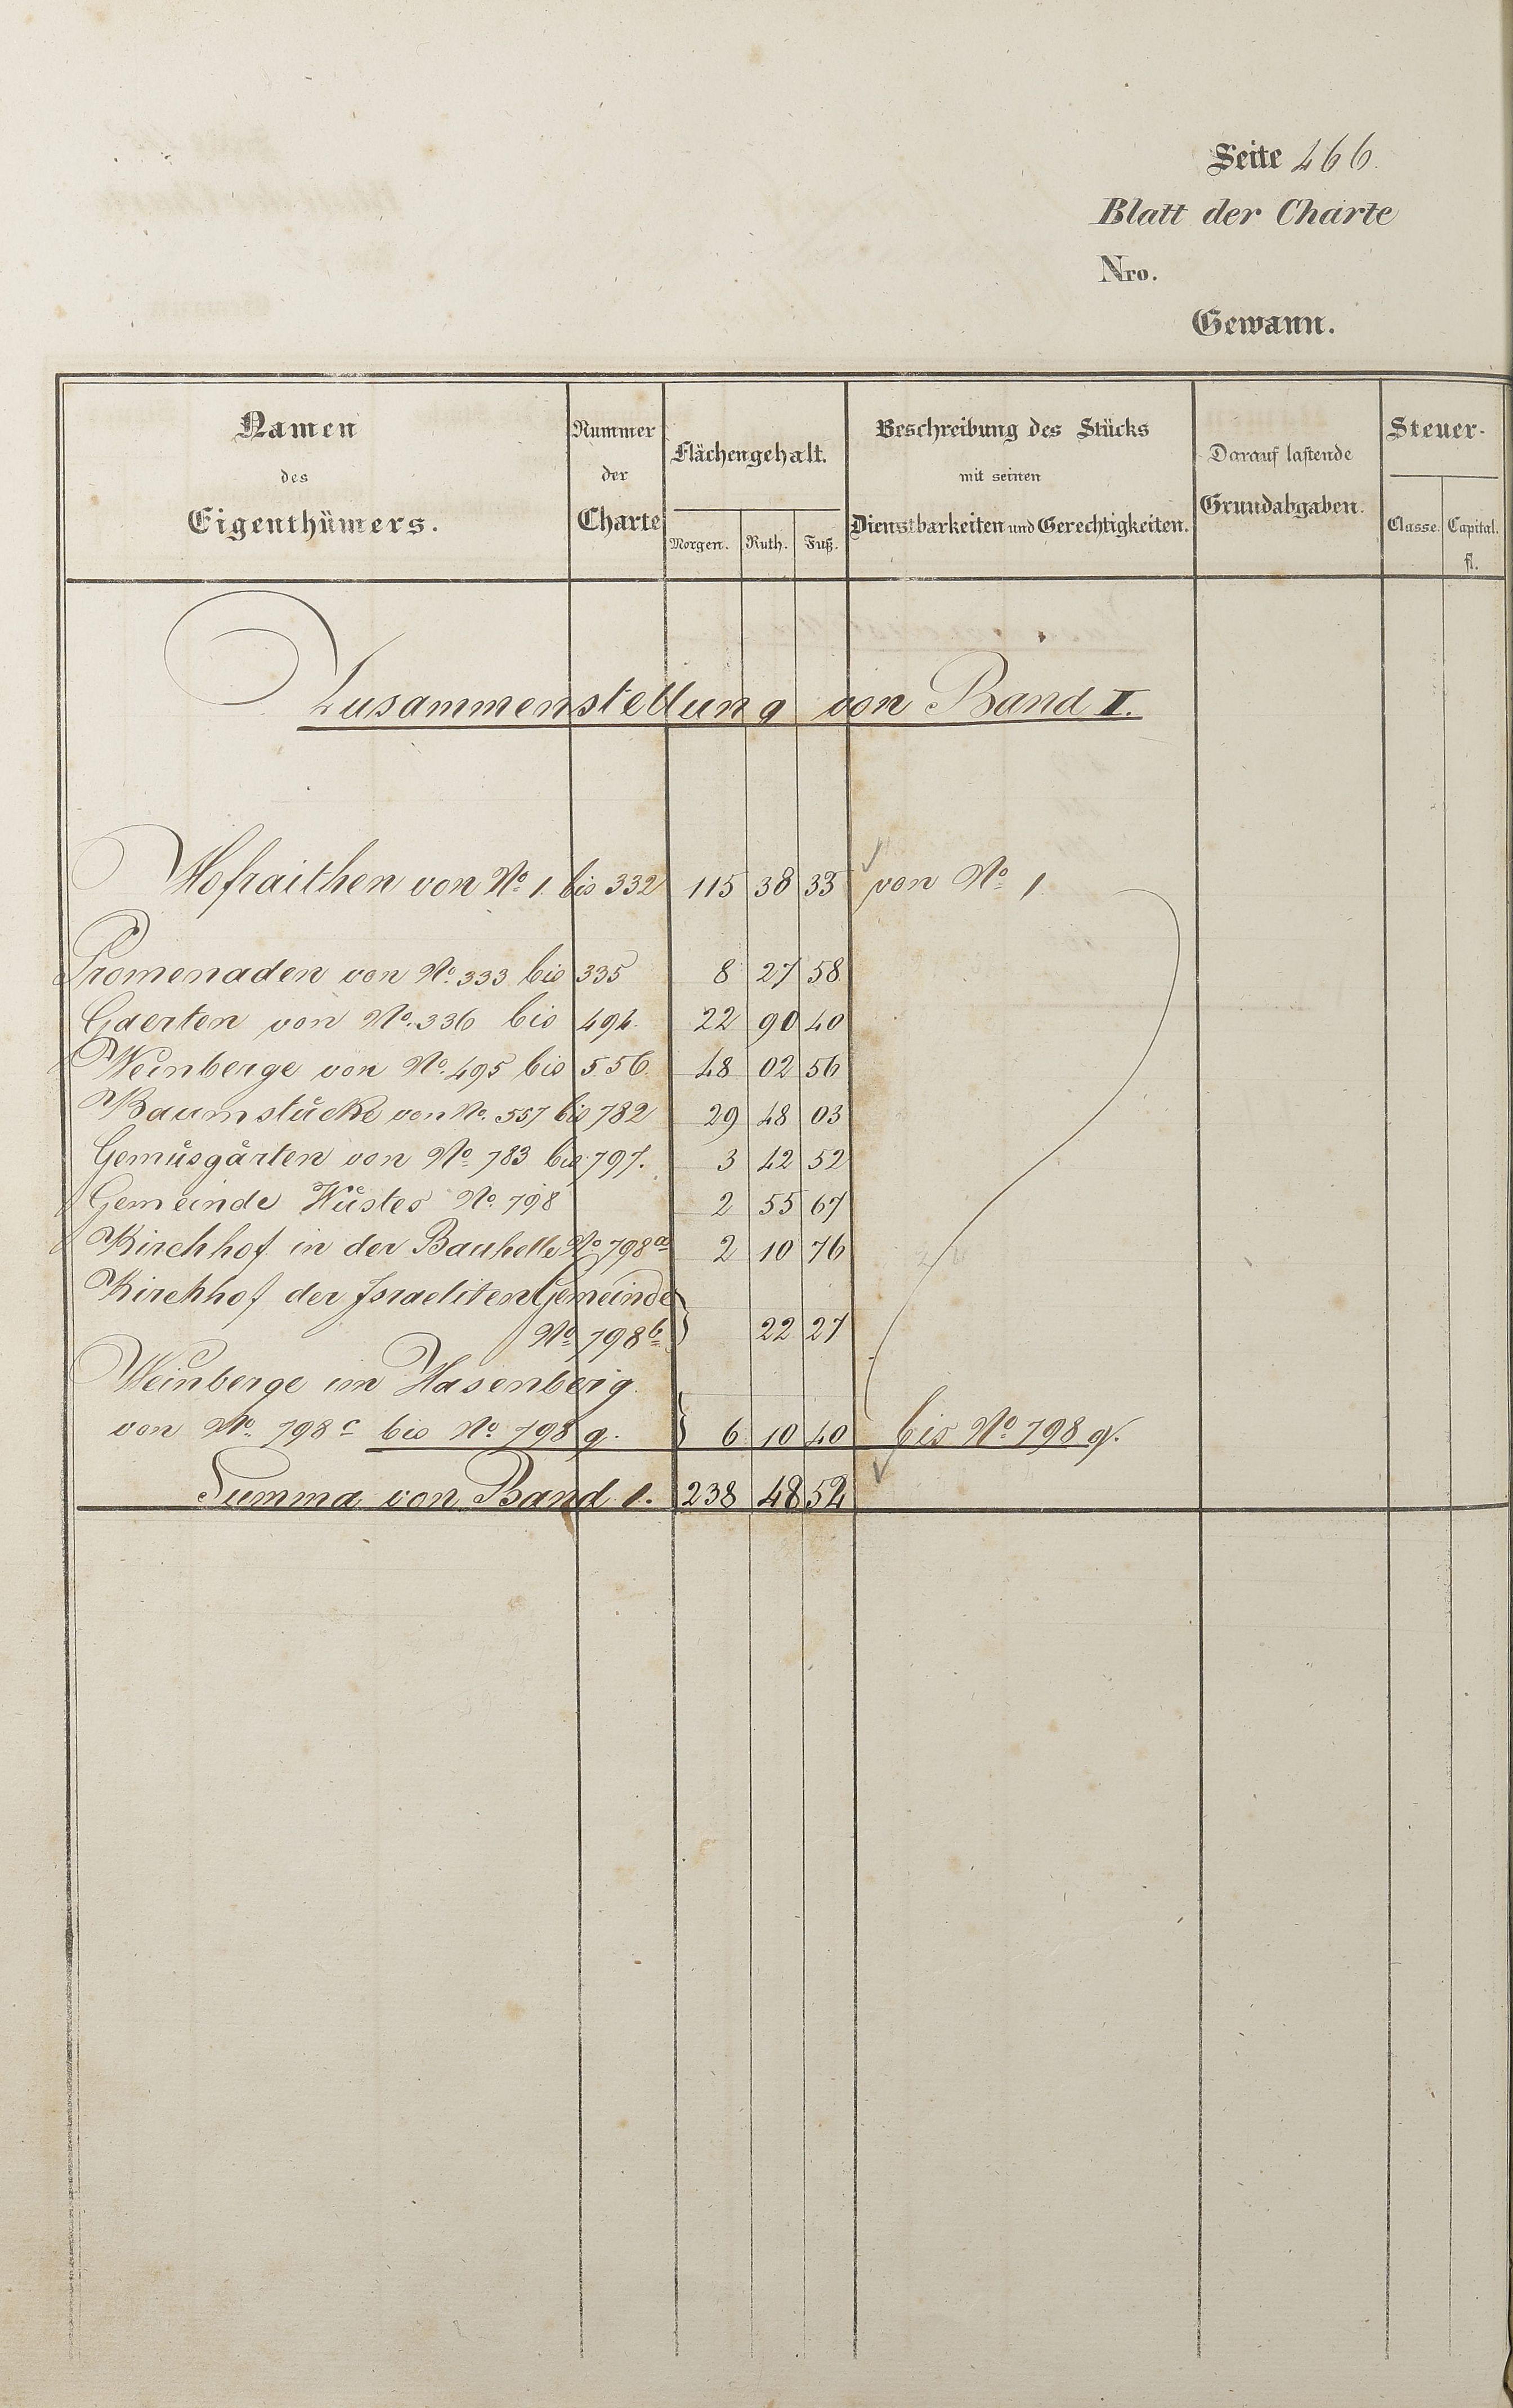 Seite 466.
Blatt der Charte
Nro.
Gewann.
Namen
des
Eigenthümers.
Nummer
der
Charte
Flächengehalt.
Morgen. Ruth. Fuß.
Beschreibung des Stücks
mit seinen
Dienstbarkeiten und Gerechtigkeiten.
Darauf lastende
Grundabgaben.
Steuer-
Classe. Capital.
fl.
Zusammenstellung von Band I.
Hofraithen von No. 1. bis 332 115 38 33 von No. 1
Promenaden von No. 333 bis 335 8 27 58
Gaerten von No. 336 bis 494. 22 90 40
Weinberge von No. 495 bis 556. 48 02 56
Baumstücke von No. 557 bis 782 29 48 03
Gemüsgärten von No. 783 bis 797. 3 42 52
Gemeinde Wüstes No. 798 2 55 67
Kirchhof in der No. 798 a 2 10 76
Kirchhof der Israeliten Gemeinde
No. 798 b 22 27
Weinberge im Hasenberg
von No. 798 c bis No. 798 g. 6 10 40 bis No. 798 g.
Summa von Band 1. 238 48 52